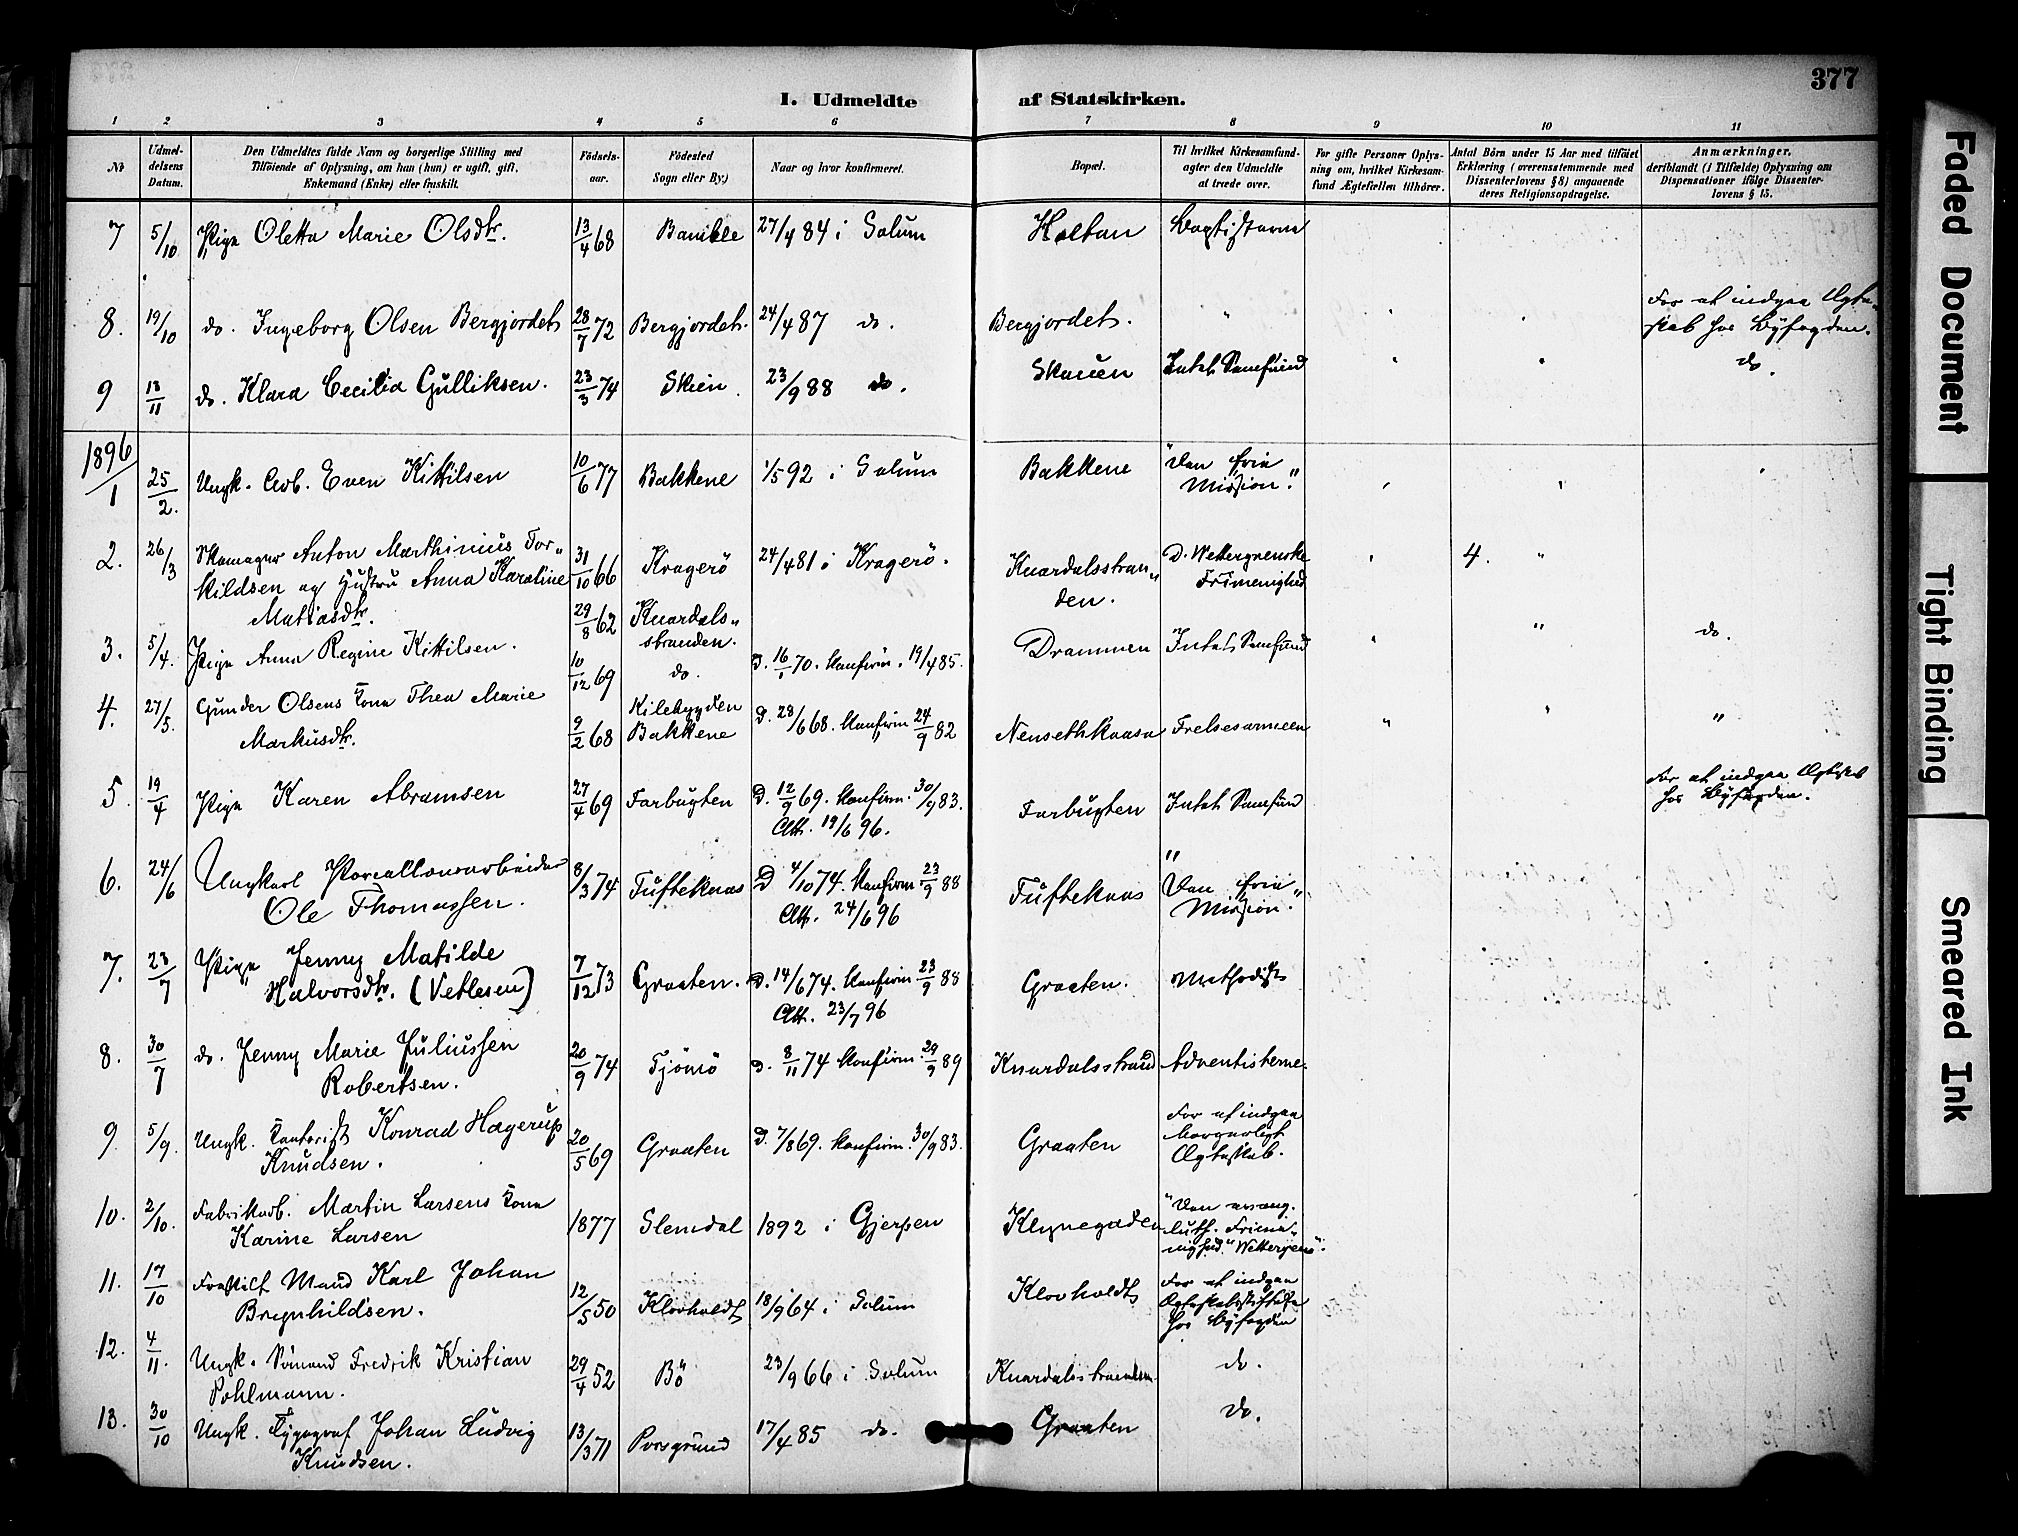 377
I. Udmeldte af Statskirken.
1 2 3 4 5 6 7 8 9 10 11
No
Udmeldelsens Datum.
Den Udmeldtes fulde Navn og borgerlige Stilling med
Tilföiende af Oplysning, om han (hun) er ugift, gift,
Enkemand (Enke) eller fraskilt.
Födselsaar.
Födested
Sogn eller By.)
Naar og hvor konfirmeret.
Bopæl.
Til hvilket Kirkesamfund
agter den Udmeldte
at træde over.
For gifte Personer Oplysning
om, hvilket Kirkesamfund
Ægtefællen tilhörer.
Antal Börn under 15 Aar med tilföiet
Erklæring (overensstemmende med
Dissenterlovens § 8) angaaende
deres Religionsopdragelse.
Anmærkninger,
deriblandt (i Tilfælde) Oplysning om
Dispensationer ifölge Dissenterlovens
§ 15.
7 5/10 Pige Oletta Marie Olsdtr. 13/4 68 Bamble 27/4 84 i Solum Holtan Baptisterne
8. 19/10 do. Ingeborg Olsen Bergjordet 28/7 72 Bergjordet. 24/4 87 do. Bergjordet. " For at indgaa Ægte-
skab hos Byfogden.
9 13/11 do. Klara Cecilia Gulliksen. 23/3 74 Skien. 23/9 88 do. Skauen Intet Samfund " " do.
1896
1 25/2. Ungk. Arb. Even Kittilsen 10/6 77 Bakkene 1/5 92 i Solum Bakkene "Den frie
Mission."
2. 26/3 Skomager Anton Marthinius Tor-
kildsen og Hustru Anna Karoline
Matiasdtr.
31/10 66 Kragerö 24/4 81 i Kragerö. Knardalsstran-
den. D. Wettergrenske
Frimenighed " 4. "
29/8 62 Knardals-
stranden.
3. 5/4. Pige Anna Regine Kittilsen. 10/12 69 do. D. 16/1 70. Konfirm. 19/4 85. Drammen Intet Samfund " " do.
4. 27/5. Gunder Olsens Kone Thea Marie
Markusdtr. 9/2 68 Kilebygden
Bakkene D. 28/6 68. Konfirm 24/9 82 Nensethkaasa Frelsesarmeen " " "
5. 19/4 Pige Karen Abramsen 27/4 69 Farbugten D. 12/9 69. Konfirm. 30/9 83.
Att. 19/6 96. Farbugten Intet Samfund For at indgaa Ægteskab
hos Byfogden.
6. 24/6 Ungkarl Porcellænsarbeider
Ole Thomassen. 8/3 74 Tufteknas D 4/10 74. Konfirm. 23/9 88
Att. 24/6 96 Tufteknas "
Den frie
Mission."
7. 23/7 Pige Jenny Matilde
Halvorsdtr. (Vetlesen) 7/12 73 Graaten. D. 14/6 74. Konfirm 23/9 88
Att. 23/7 96 Graaten. Methodist
8. 30/7 do. Jenny Marie Juliussen
Robertsen. 20/9 74 Tjömö D. 8/11 74 Konfirm. 29/9 89 Knardalsstrand Adventisterne.
9. 5/9. Ungk. Kontorist Konrad Hagerup
Knudsen. 20/5 69 Graaten D. 7/8 69. Konfirm. 30/9 83. Graaten For at indgaa
borgerligt
Ægteskab.
10. 2/10. Fabrikarb. Martin Larsens Kone
Karine Larsen 1877 Slemdal 1892 i Gjerpen Klynegaden "Den evang.
luth. Frime-
nighed" Wettergrens".
11. 17/10 Fraskilt Mand Karl Johan
Brynhildsen. 12/5 50 Klovholdt 18/9 64 i Solum Klovholdt For at indgaa
Ægteskabsstiftelse
hos Byfogden
12. 4/11. Ungk. Sömand Fredrik Kristian
Pohlmann. 29/4 52 Bö 23/9 66 i Solum Knardalsstranden. do.
13. 30/10 Ungk. Typograf Johan Ludvig
Knudsen. 13/3 71 Porsgrund 17/4 85 do. Graaten do.
Faded Document
Tight Binding
Smeared Ink